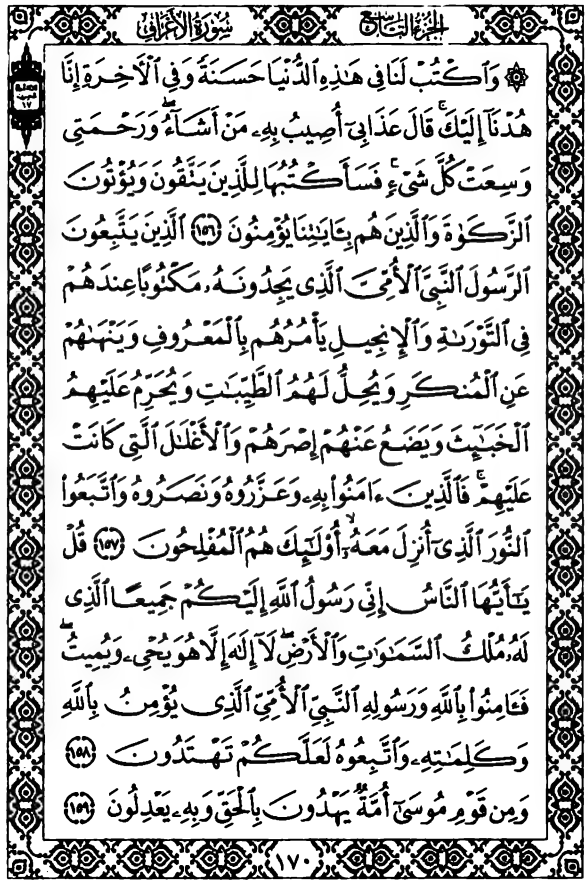 الجزء التاسع
سورة الأعراف
۞ وَٱكۡتُبۡ لَنَا فِي هَٰذِهِ ٱلدُّنۡيَا حَسَنَةٗ وَفِي ٱلۡأٓخِرَةِ إِنَّا
هُدۡنَآ إِلَيۡكَۚ قَالَ عَذَابِيٓ أُصِيبُ بِهِۦ مَنۡ أَشَآءُۖ وَرَحۡمَتِي
وَسِعَتۡ كُلَّ شَيۡءٖۚ فَسَأَكۡتُبُهَا لِلَّذِينَ يَتَّقُونَ وَيُؤۡتُونَ
ٱلزَّكَوٰةَ وَٱلَّذِينَ هُم بِـَٔايَٰتِنَا يُؤۡمِنُونَ ١٥٦ ٱلَّذِينَ يَتَّبِعُونَ
ٱلرَّسُولَ ٱلنَّبِيَّ ٱلۡأُمِّيَّ ٱلَّذِي يَجِدُونَهُۥ مَكۡتُوبًا عِندَهُمۡ
فِي ٱلتَّوۡرَىٰةِ وَٱلۡإِنجِيلِ يَأۡمُرُهُم بِٱلۡمَعۡرُوفِ وَيَنۡهَىٰهُمۡ
عَنِ ٱلۡمُنكَرِ وَيُحِلُّ لَهُمُ ٱلطَّيِّبَٰتِ وَيُحَرِّمُ عَلَيۡهِمُ
ٱلۡخَبَٰٓئِثَ وَيَضَعُ عَنۡهُمۡ إِصۡرَهُمۡ وَٱلۡأَغۡلَٰلَ ٱلَّتِي كَانَتۡ
عَلَيۡهِمۡۚ فَٱلَّذِينَ ءَامَنُواْ بِهِۦ وَعَزَّرُوهُ وَنَصَرُوهُ وَٱتَّبَعُواْ
ٱلنُّورَ ٱلَّذِيٓ أُنزِلَ مَعَهُۥٓ أُوْلَٰٓئِكَ هُمُ ٱلۡمُفۡلِحُونَ ١٥٧ قُلۡ
يَٰٓأَيُّهَا ٱلنَّاسُ إِنِّي رَسُولُ ٱللَّهِ إِلَيۡكُمۡ جَمِيعًا ٱلَّذِي
لَهُۥ مُلۡكُ ٱلسَّمَٰوَٰتِ وَٱلۡأَرۡضِۖ لَآ إِلَٰهَ إِلَّا هُوَ يُحۡيِۦ وَيُمِيتُۖ
فَـَٔامِنُواْ بِٱللَّهِ وَرَسُولِهِ ٱلنَّبِيِّ ٱلۡأُمِّيِّ ٱلَّذِي يُؤۡمِنُ بِٱللَّهِ
وَكَلِمَٰتِهِۦ وَٱتَّبِعُوهُ لَعَلَّكُمۡ تَهۡتَدُونَ ١٥٨
وَمِن قَوۡمِ مُوسَىٰٓ أُمَّةٞ يَهۡدُونَ بِٱلۡحَقِّ وَبِهِۦ يَعۡدِلُونَ ١٥٩
١٧٠